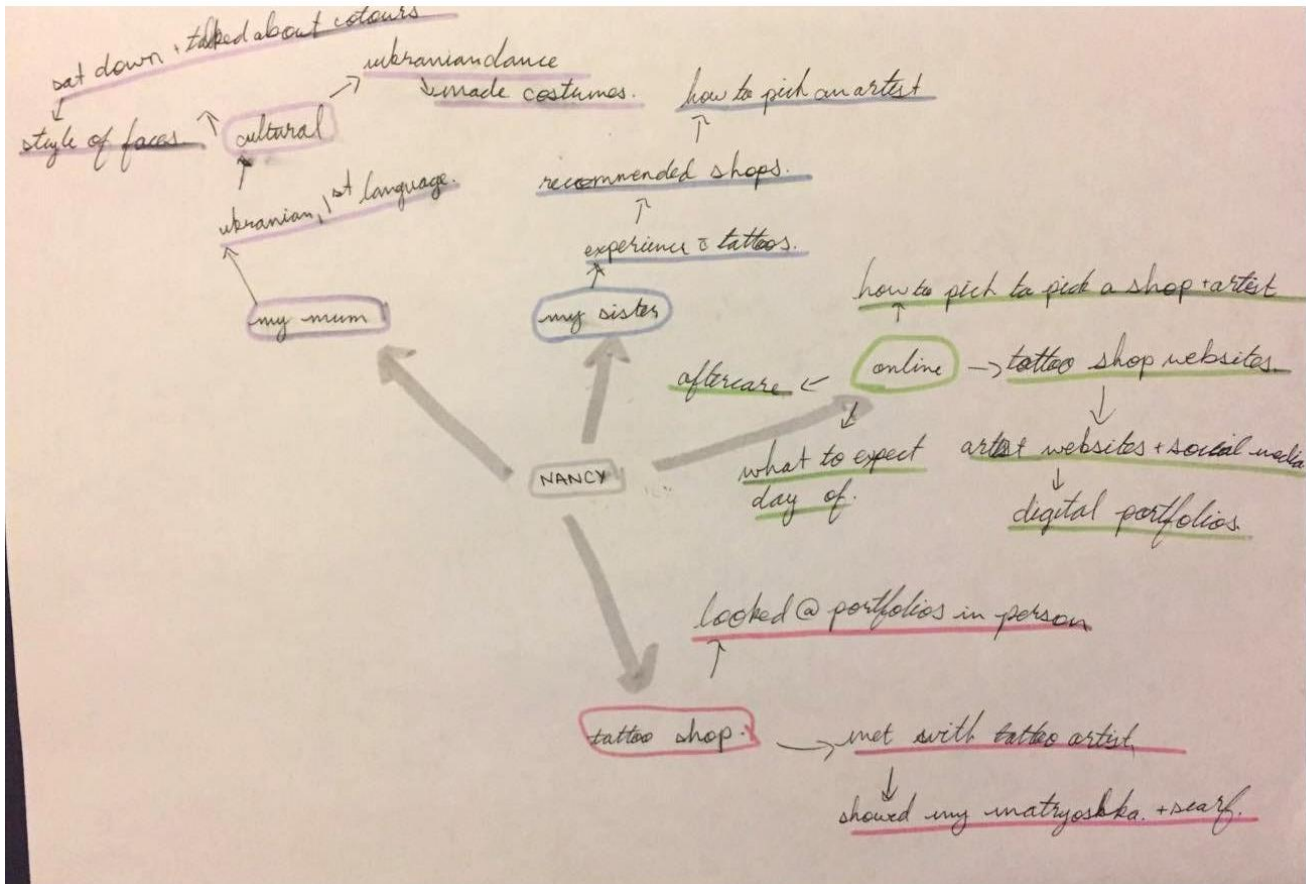 sat down + talked about colours
style of faces
cultural
ukraniandance
made costumes.
ukranian, 1st language.
my mum
how to pick an artest
recommended shops.
experience c̄ tattoos.
my sister
how to pick to pick a shop + artist
online
tattoo shop websites.
aftercare
what to expect
day of.
artist websites + social media
digital portfolios.
NANCY
looked @ portfolios in person
tattoo shop.
met with tattoo artist
showed my matryoshka. + scarf.